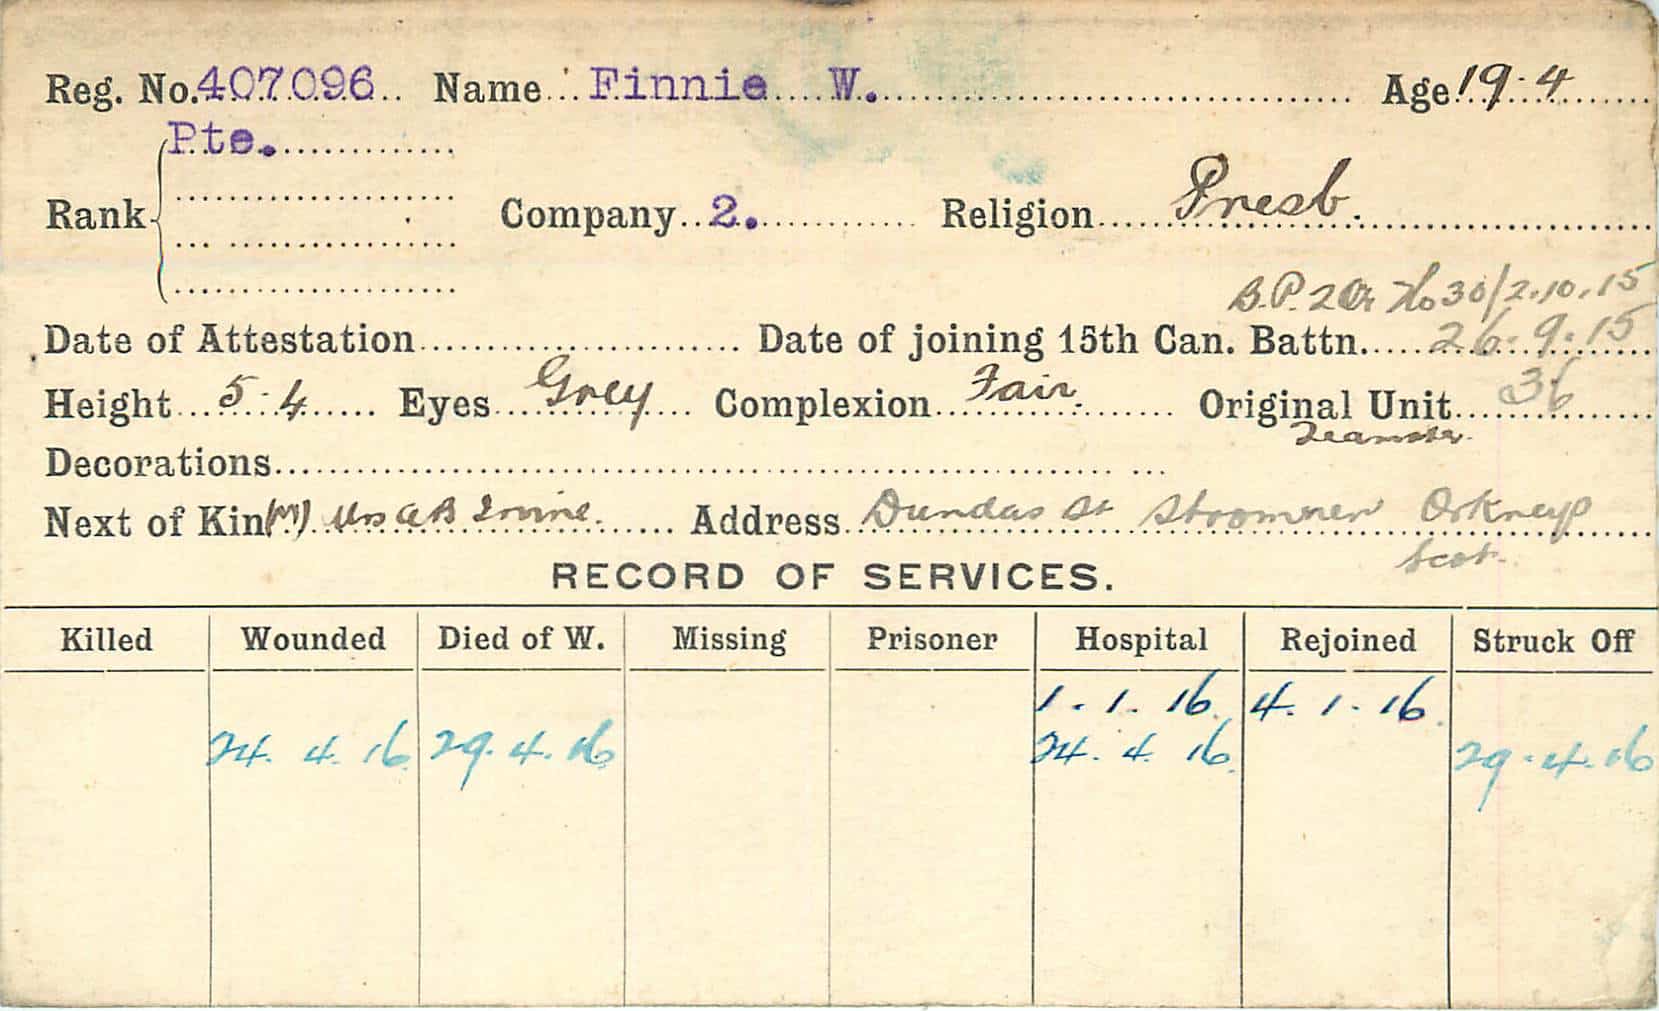 Reg. No. 407096 Name Finnie W. Age 19-4
Pte.
Rank Company 2. Religion Presb.
B.P. 2 Or No 30/2.10.15
Date of Attestation Date of joining 15th Can. Battn. 26.9.15
Height 5-4 Eyes Grey Complexion Fair. Original Unit 36
Teamster.
Decorations
Next of Kin (M) Mrs A B Irvine. Address Dundas St Stromner Orkneys
Scot.
RECORD OF SERVICES.
Killed Wounded Died of W. Missing Prisoner Hospital Rejoined Struck Off
1.1.16. 4.1.16.
24.4.16 29.4.16 24.4.16. 29.4.16